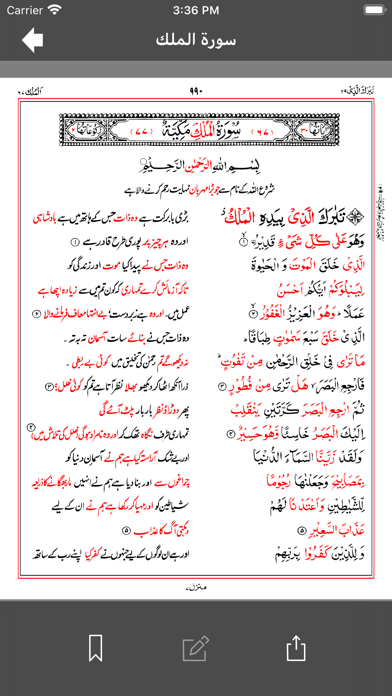 Carrier 3:36 PM
سورة الملك
تَبٰرَكَ الَّذِیْ ۲۹
۹۹۰
اَلْمُلْك ۶۷
اٰیاتُهَا ۳۰ (۶۷) سُوْرَةُ الْمُلْكِ مَكِّیَّةٌ (۷۷) رُكُوْعَاتُهَا ۲
بِسْمِ اللهِ الرَّحْمٰنِ الرَّحِیْمِ
شروع اللہ کے نام سے جو بڑا مہربان نہایت رحم کرنے والا ہے
تَبٰرَكَ الَّذِیْ بِیَدِهِ الْمُلْكُ
وَهُوَ عَلٰی كُلِّ شَیْءٍ قَدِیْرُۨ ۱
الَّذِیْ خَلَقَ الْمَوْتَ وَ الْحَیٰوةَ
لِیَبْلُوَكُمْ اَیُّكُمْ اَحْسَنُ
عَمَلًا ؕ وَهُوَ الْعَزِیْزُ الْغَفُوْرُ ۲
الَّذِیْ خَلَقَ سَبْعَ سَمٰوٰتٍ طِبَاقًا ؕ
مَا تَرٰی فِیْ خَلْقِ الرَّحْمٰنِ مِنْ تَفٰوُتٍ ؕ
فَارْجِعِ الْبَصَرَ ۙ هَلْ تَرٰی مِنْ فُطُوْرٍ ۳
ثُمَّ ارْجِعِ الْبَصَرَ كَرَّتَیْنِ یَنْقَلِبْ
اِلَیْكَ الْبَصَرُ خَاسِئًا وَّهُوَ حَسِیْرٌ ۴
وَلَقَدْ زَیَّنَّا السَّمَآءَ الدُّنْیَا
بِمَصَابِیْحَ وَجَعَلْنٰهَا رُجُوْمًا
لِّلشَّیٰطِیْنِ وَاَعْتَدْنَا لَهُمْ
عَذَابَ السَّعِیْرِ ۵
وَلِلَّذِیْنَ كَفَرُوْا بِرَبِّهِمْ
بڑی بابرکت ہے وہ ذات جس کے ہاتھ میں ہے بادشاہی
اور وہ ہر چیز پر پوری طرح قادر ہے ۱
وہ ذات جس نے پیدا کیا موت اور زندگی کو
تاکہ آزمائش کرے تمہاری کہ کون تم میں سے زیادہ اچھا ہے
عمل میں۔ اور وہ ہے زبردست، بے انتہا معاف فرمانے والا ۲
وہ ذات جس نے بنائے سات آسمان تہ بہ تہ۔
نہ دیکھو گے تم رحمٰن کی تخلیق میں کوئی بے ربطی۔
ذرا آنکھ اٹھا کر دیکھو بھلا نظر آتا ہے تم کو کوئی خلل؟ ۳
پھر دوڑاؤ نظر بار بار پلٹ آئے گی
تمہاری طرف نگاہ تھک کر اور وہ نامراد ہوگی (خلل کی تلاش میں) ۴
اور بے شک آراستہ کیا ہے ہم نے آسمانِ دنیا کو
چراغوں سے اور بنا دیا ہے ہم نے انہیں مار بھگانے کا ذریعہ
شیاطین کو اور مہیا کر رکھا ہے ہم نے ان کے لیے
دہکتی آگ کا عذاب ۵
اور ہے ان لوگوں کے لیے جنہوں نے کفر کیا اپنے رب کے ساتھ
منزل ۷